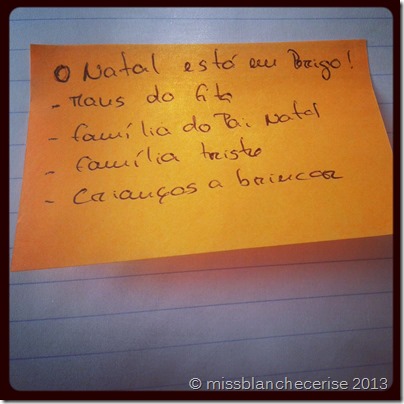 O Natal está em Perigo!
- Maus da fita
- família do Pai Natal
- família triste
- Crianças a brincar
© missblanchecerise 2013